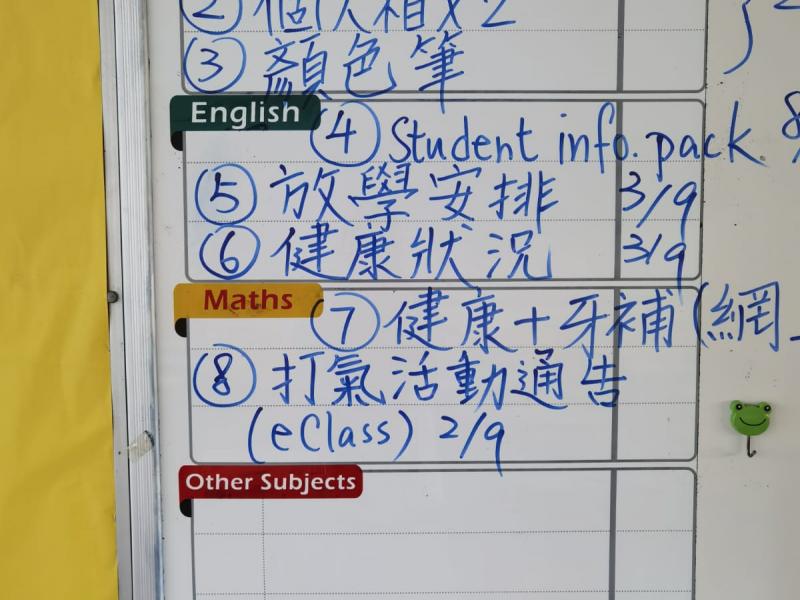 ② 個人相 x 2
③ 顏色筆
English
④ Student info. pack
⑤ 放學安排 3/9
⑥ 健康狀況 3/9
Maths
⑦ 健康+牙補(網
⑧ 打氣活動通告
(eClass) 2/9
Other Subjects